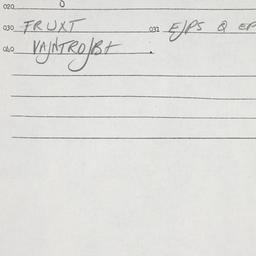 020
030 FRUXT 032 E/PS Q EP
040 VA/NTRO/B+